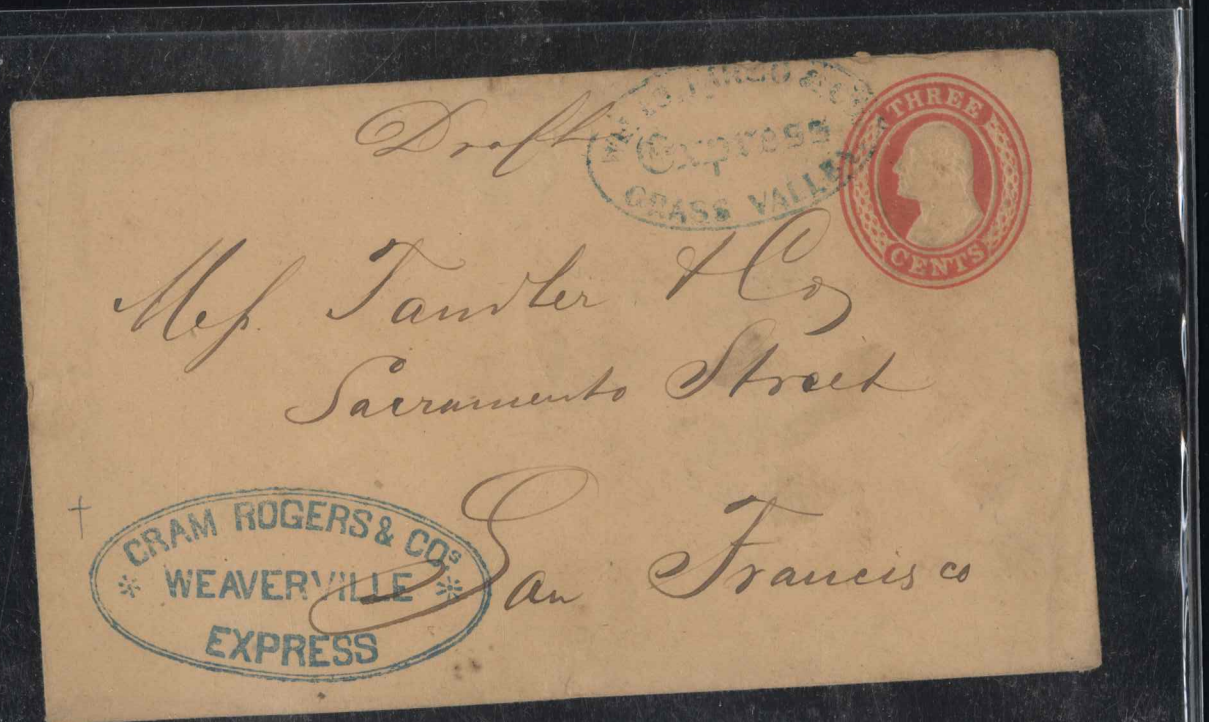 Draft
WELLS, FARGO & CO
Express
GRASS VALLEY
THREE
CENTS
Mess. Tandler & Co
Sacramento Street
San Francisco
CRAM ROGERS & COs
* WEAVERVILLE *
EXPRESS